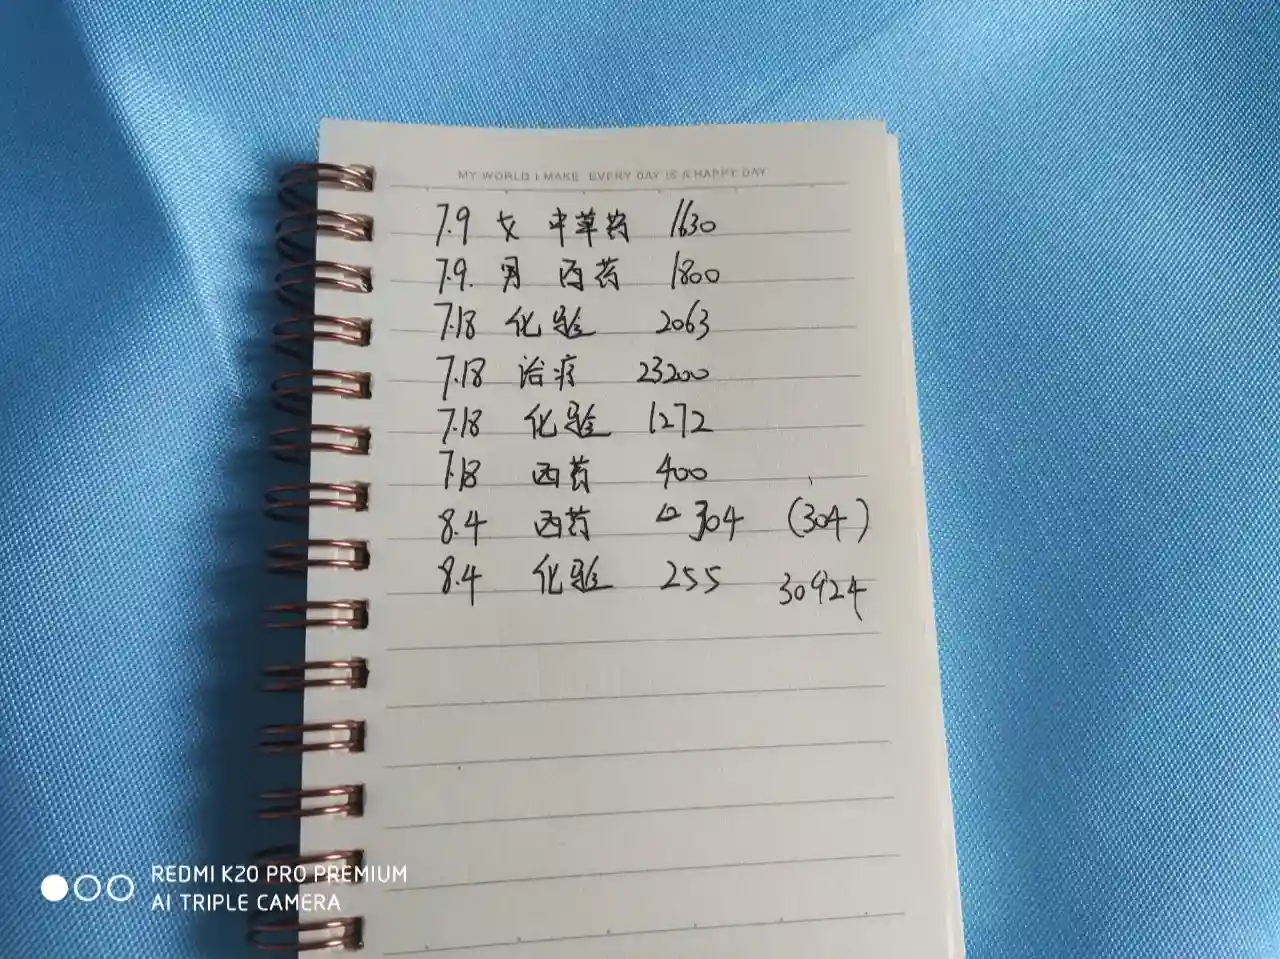 MY WORLD I MAKE EVERY DAY IS A HAPPY DAY
7.9 女 中草药 1630
7.9. 男 西药 1800
7.18 化验 2063
7.18 治疗 23200
7.18 化验 1272
7.18 西药 400
8.4 西药 304 (304)
8.4 化验 255 30924
REDMI K20 PRO PREMIUM
AI TRIPLE CAMERA